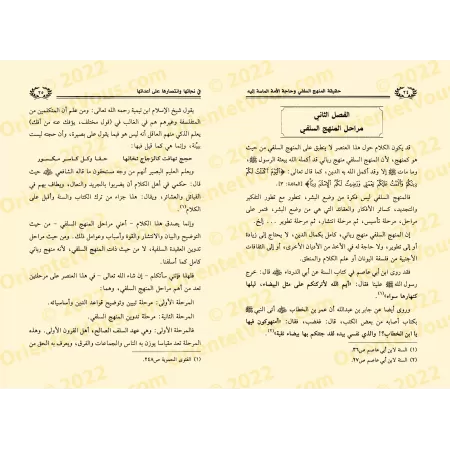 حقيقة المنهج السلفي وحاجة الأمة الماسة إليه
الفصل الثاني
مراحل المنهج السلفي
قد يكون الكلام حول هذا العنصر لا ينطبق على المنهج السلفي من حيث
هو كمنهج، لأن المنهج السلفي منهج رباني قد أكمله الله ببعثة الرسول ﷺ،
وما مات ﷺ إلا وقد أكمل الله به الدين، كما قال تعالى: ﴿اليوم أكملت لكم
دينكم وأتممت عليكم نعمتي ورضيت لكم الإسلام دينا﴾ [المائدة: ٣].
فالمنهج السلفي ليس فكرة من وضع البشر، تتطور مع تطور التفكير
والتجديد، كسائر الأفكار والعقائد التي هي من وضع البشر، فتمر على
مراحل، مرحلة تأسيس، ثم مرحلة انتشار، ثم مرحلة تطوير ... إلخ.
إن المنهج السلفي منهج رباني، كامل بكمال الدين، لا يحتاج إلى زيادة
أو إلى تطوير، ولا حاجة له في الأخذ من الأديان الأخرى، أو إلى الثقافات
الأجنبية من فلسفة اليونان أو علم الكلام والمنطق.
فقد روى ابن أبي عاصم في كتاب السنة عن أبي الدرداء ﷺ قال: خرج
رسول الله ﷺ علينا فقال: «أيم الله لأتركنكم على مثل البيضاء، ليلها
كنهارها سواء»(١).
وروى أيضا عن جابر بن عبدالله أن عمر بن الخطاب ﷺ أتى النبي ﷺ
بكتاب أصابه من بعض الكتب، قال: فغضب، فقال: «أمتهوكون فيها
يا ابن الخطاب؟! والذي نفسي بيده لقد جئتكم بها بيضاء نقية»(٢)
(١) السنة لابن أبي عاصم ص٢٦.
(٢) السنة لابن أبي عاصم ص٢٧.
في نجاتها وانتصارها على أعدائها
يقول شيخ الإسلام ابن تيمية رحمه الله تعالى: ومن علم أن المتكلمين من
المتفلسفة وغيرهم هم في الغالب في (قول مختلف، يؤفك عنه من أفك)
يعلم الذكي منهم العاقل أنه ليس هو فيما يقول على بصيرة، وأن حجته ليست
بينة، وإنما هي كما قيل فيها:
حجج تهافت كالزجاج تخالها حقا وكل كاسر مكسور
ويعلم العليم البصير أنهم من وجه مستحقون ما قاله الشافعي ﷺ حيث
قال: حكمي في أهل الكلام أن يضربوا بالجريد والنعال، ويطاف بهم في
القبائل والعشائر، ويقال: هذا جزاء من ترك الكتاب والسنة وأقبل على
الكلام(١).
وإنما يصدق هذا الكلام - أعني مراحل المنهج السلفي - من حيث
التوضيح والبيان والانتشار وأسباب وعوامل ذلك. ومن حيث مراحل
تدوين العقيدة السلفية، لا من حيث ذات المنهج السلفي، لأنه منهج رباني
كامل كما أسلفنا.
فلهذا فإنني سأتكلم - إن شاء الله تعالى - في هذا العنصر على مرحلتين
من مراحل المنهج السلفي، وهما:
المرحلة الأولى: مرحلة تبيين وتوضيح قواعد التبين وأصالته.
المرحلة الثانية: مرحلة تدوين المنهج السلفي.
فالمرحلة الأولى: وهي عهد السلف الصالح، أهل القرون الأولى، وهذه
المرحلة تعد مقياسا يوزن به الناس والجماعات والفرق، ويعرف به الحق من
(١) الفتوى الحموية ص٢٤٨.